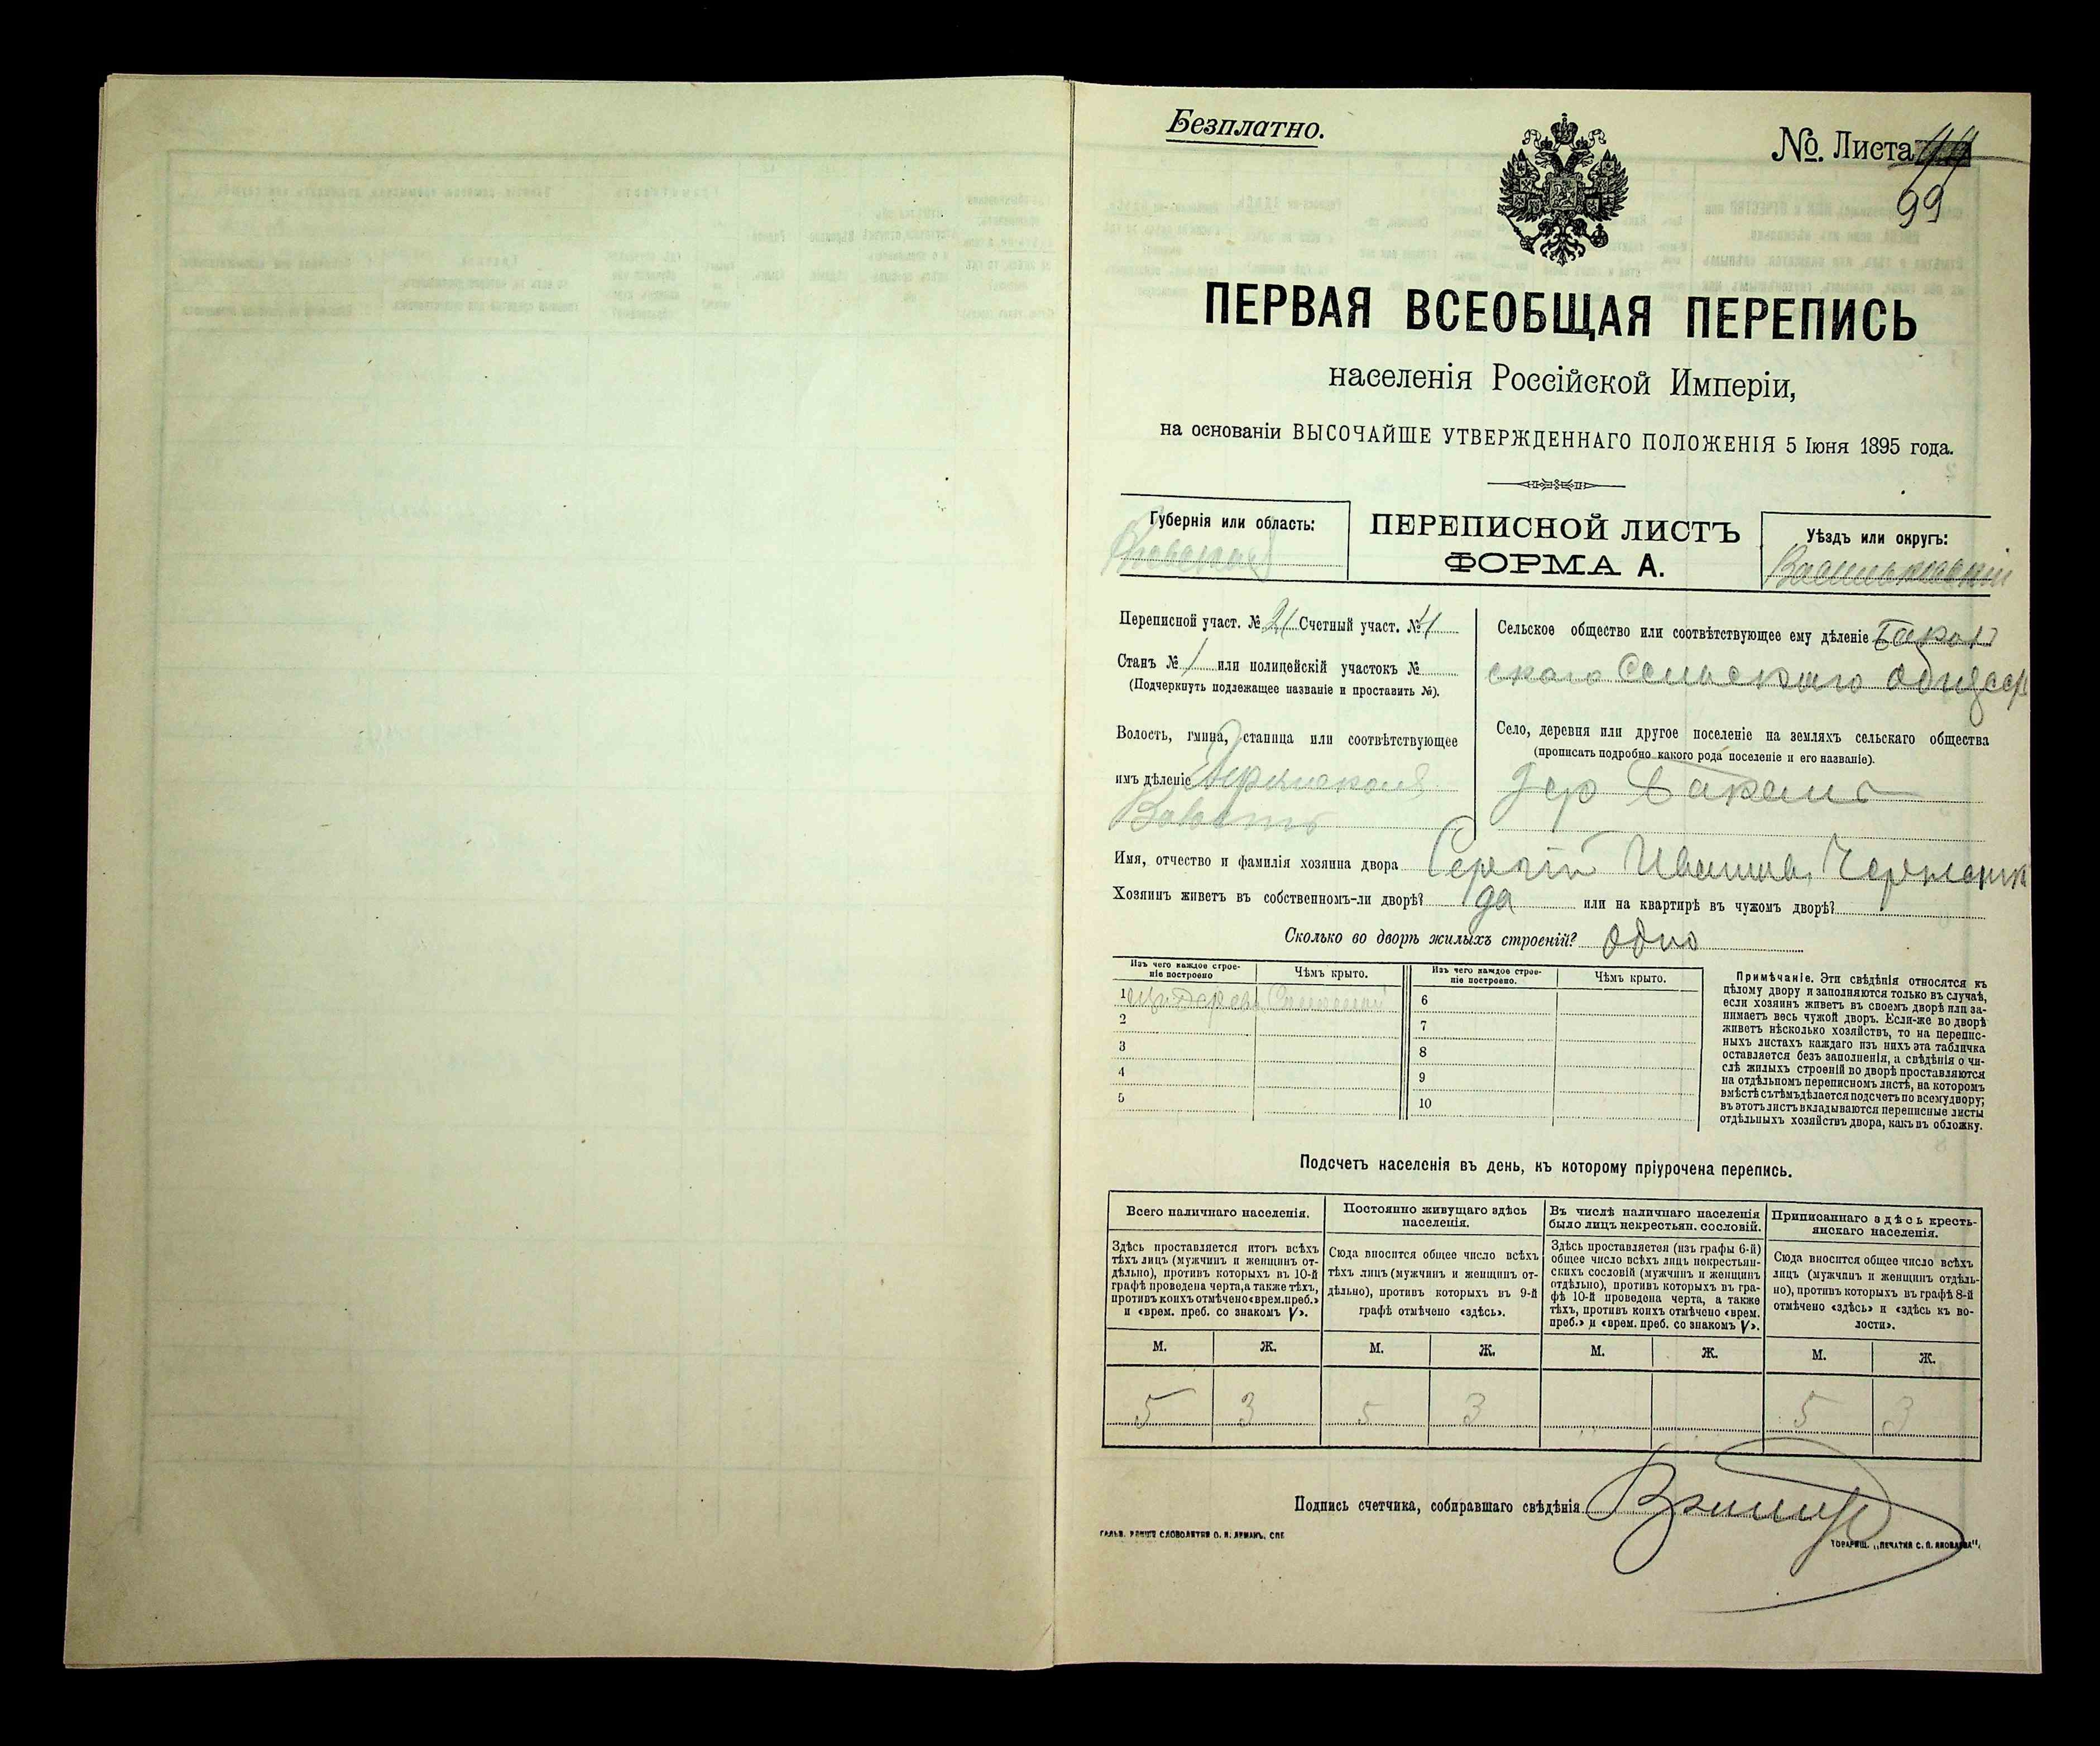 Безплатно.
№. Листа
99
ПЕРВАЯ ВСЕОБЩАЯ ПЕРЕПИСЬ
населенія Россійской Имперіи,
на основаніи ВЫСОЧАЙШЕ УТВЕРЖДЕННАГО ПОЛОЖЕНІЯ 5 Іюня 1895 года.
Губернія или область:
ПЕРЕПИСНОЙ ЛИСТЪ
ФОРМА А.
Уѣздъ или округъ:
Васильковскій
Переписной участ. № 21 Счетный участ. № 4
Станъ № 1 или полицейскій участокъ №
(Подчеркнуть подлежащее названіе и проставить №).
Волость, гмина, станица или соотвѣтствующее
имъ дѣленіе
Волость
Сельское общество или соотвѣтствующее ему дѣленіе
скаго Сельскаго
Село, деревня или другое поселеніе на земляхъ сельскаго общества
(прописать подробно какого рода поселеніе и его названіе).
дер
Имя, отчество и фамилія хозяина двора Сергій Иванов
Хозяинъ живетъ въ собственномъ-ли дворѣ? да или на квартирѣ въ чужомъ дворѣ?
Сколько во дворѣ жилыхъ строеній? одно
Изъ чего каждое строе-
ніе построено
Чѣмъ крыто.
Изъ чего каждое строе-
ніе построено.
Чѣмъ крыто.
1
2
3
4
5
6
7
8
9
10
Примѣчаніе. Эти свѣдѣнія относятся къ
цѣлому двору и заполняются только въ случаѣ,
если хозяинъ живетъ въ своемъ дворѣ или за-
нимаетъ весь чужой дворъ. Если-же во дворѣ
живетъ нѣсколько хозяйствъ, то на перепис-
ныхъ листахъ каждаго изъ нихъ эта табличка
оставляется безъ заполненія, а свѣдѣнія о чи-
слѣ жилыхъ строеній во дворѣ проставляются
на отдѣльномъ переписномъ листѣ, на которомъ
вмѣстѣ съ тѣмъ дѣлается подсчетъ по всему двору;
въ этотъ листъ вкладываются переписные листы
отдѣльныхъ хозяйствъ двора, какъ въ обложку.
Подсчетъ населенія въ день, къ которому пріурочена перепись.
Всего наличнаго населенія.
Здѣсь проставляется итогъ всѣхъ
тѣхъ лицъ (мужчинъ и женщинъ от-
дѣльно), противъ которыхъ въ 10-й
графѣ проведена черта, а также тѣхъ,
противъ коихъ отмѣчено «врем. преб.»
и «врем. преб. со знакомъ V».
Постоянно живущаго здѣсь
населенія.
Сюда вносится общее число всѣхъ
тѣхъ лицъ (мужчинъ и женщинъ от-
дѣльно), противъ которыхъ въ 9-й
графѣ отмѣчено «здѣсь».
Въ числѣ наличнаго населенія
было лицъ некрестьян. сословій.
Здѣсь проставляется (изъ графы 6-й)
общее число всѣхъ лицъ некрестьян-
скихъ сословій (мужчинъ и женщинъ
отдѣльно), противъ которыхъ въ гра-
фѣ 10-й проведена черта, а также
тѣхъ, противъ коихъ отмѣчено «врем.
преб.» и «врем. преб. со знакомъ V».
Приписаннаго здѣсь кресть-
янскаго населенія.
Сюда вносится общее число всѣхъ
лицъ (мужчинъ и женщинъ отдѣль-
но), противъ которыхъ въ графѣ 8-й
отмѣчено «здѣсь» и «здѣсь къ во-
лости».
М. Ж. М. Ж. М. Ж. М. Ж.
5 3 5 3 5 3
Подпись счетчика, собиравшаго свѣдѣнія